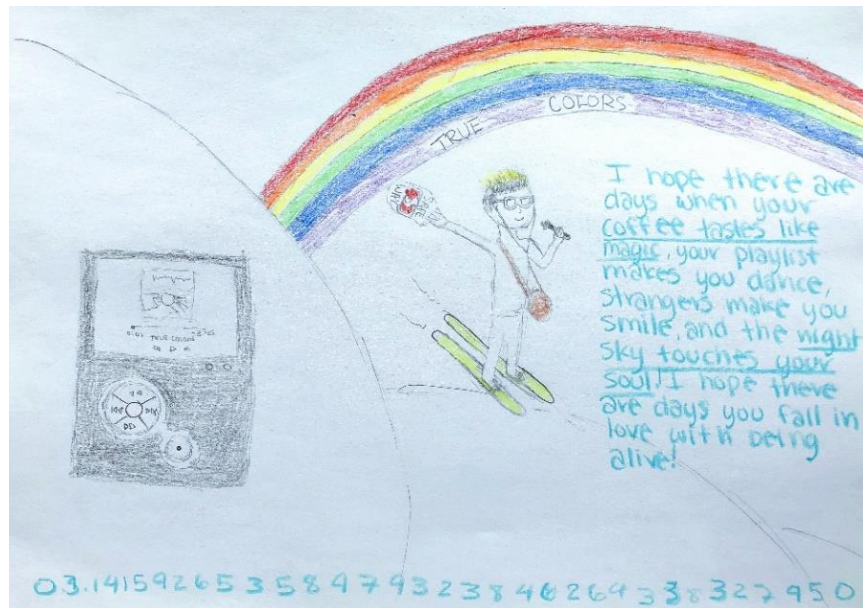 TRUE COLORS
I hope there are
days when your
coffee tastes like
magic, your playlist
makes you dance,
strangers make you
smile, and the night
sky touches your
soul! I hope there
are days you fall in
love with being
alive!
TRUE COLORS
03.14159265358979323846264338327950